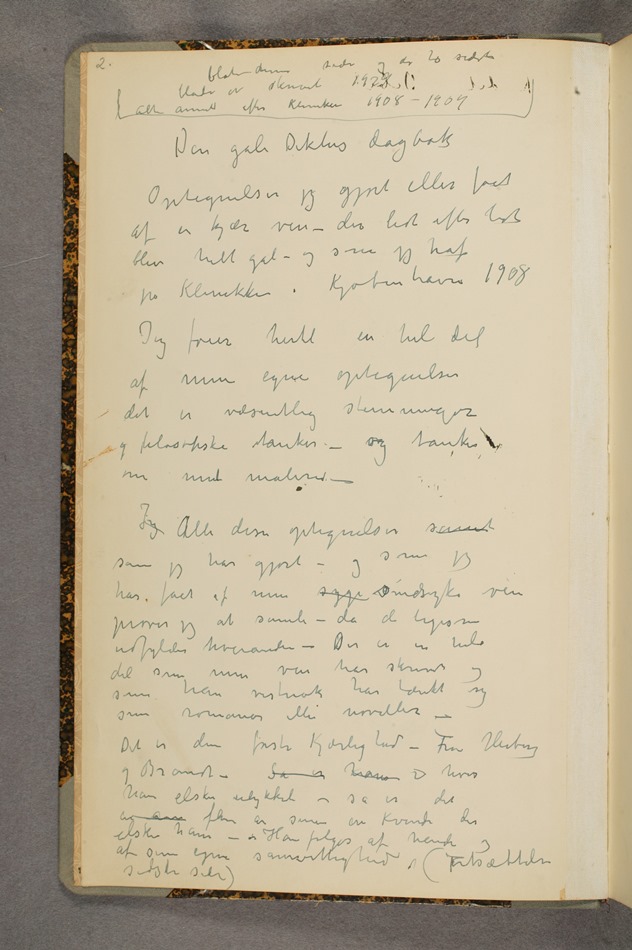 2.
blade denne side og de to sidste
blade er skrevet 1929
alt annet efter Kliniken 1908–1909
Den gale Dikters dagbok
Optegnelser jeg gjort eller fået
af en kjær ven – der lidt efter lidt
blev helt gal – og som jeg traf
på Klinikken. Kjøbenhavn 1908
Jeg føier hertil en hel del
af mine egne optegnelser
det er væsentlig stemninger
og filosofiske tanker – og tanker
om mit maleri –
Jeg Alle disse optegnelser samt
som jeg har gjort – og som jeg
har fået af min syge sindsyke ven
prøver jeg at samle – da de ligesom
udfylder hverandre – Der er en hel
del som min ven har skrevet og
som han vistnok har tænkt sig
som romaner eller noveller –
Det er den første Kjærlighed – Fru Heiberg
og Brandt – Så er hvor
han elsker ulykkelig – så er det
den er som en Kvinde der
elsker ham – Han følges af hende og
af sin egne samvittighed (Fortsættelse
sidste side)